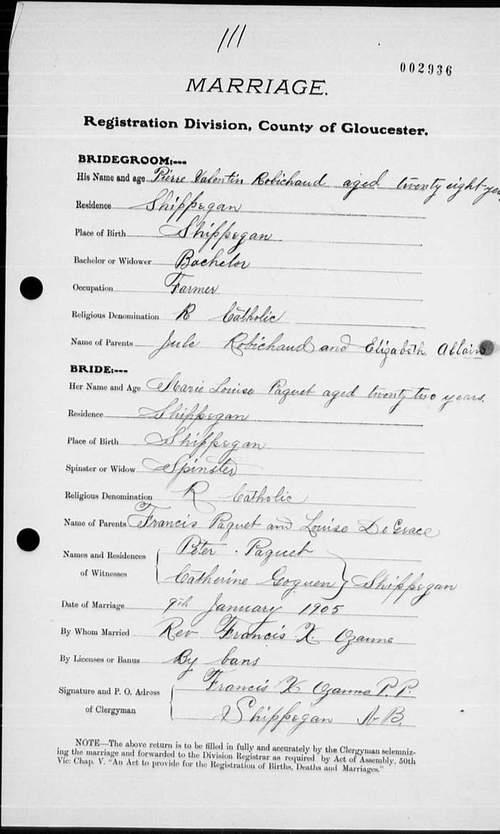 111
002936
MARRIAGE.
Registration Division, County of Gloucester.
BRIDEGROOM:---
His Name and age Pierre Valentin Robichaud aged twenty eight years
Residence Shippegan
Place of Birth Shippegan
Bachelor or Widower Bachelor
Occupation Farmer
Religious Denomination R Catholic
Name of Parents Jule Robichaud and Elizabeth Allain
BRIDE:---
Her Name and Age Marie Louise Paquet aged twenty two years.
Residence Shippegan
Place of Birth Shippegan
Spinster or Widow Spinster
Religious Denomination R Catholic
Name of Parents Francis Paquet and Louise DeGrace
Names and Residences of Witnesses Peter Paquet
Catherine Goguen } Shippegan
Date of Marriage 9th January 1905
By Whom Married Rev Francis X. Ozanne
By Licenses or Banns By bans
Signature and P. O. Adress of Clergyman Francis X Ozanne P.P.
Shippegan N.B.
NOTE—The above return is to be filled in fully and accurately by the Clergyman solemniz-
ing the marriage and forwarded to the Division Registrar as required by Act of Assembly, 50th
Vic. Chap. V. "An Act to provide for the Registration of Births, Deaths and Marriages."